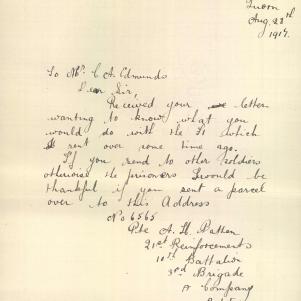 Quorn
Aug. 28th
1917.
To Mr. C A Edmunds
Dear Sir,
Received your letter
wanting to know what you
would do with the £1 which
I sent over some time ago.
If you send to other soldiers
otherwise the prisoners I would be
thankful if you sent a parcel
over to this Address
No 6565
Pte A. H. Patten
21st Reinforcements
10th Battalion
3rd Brigade
A Company